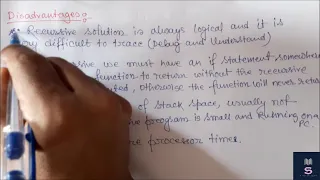 Disadvantages:
Recursive solution is always logical and it is
very difficult to trace (Debug and Understand)
we must have an if statement somewhere
function to return without the recursive
otherwise the function will never return
of stack space, usually not
program is small and running on a
PC.
processor time.
S